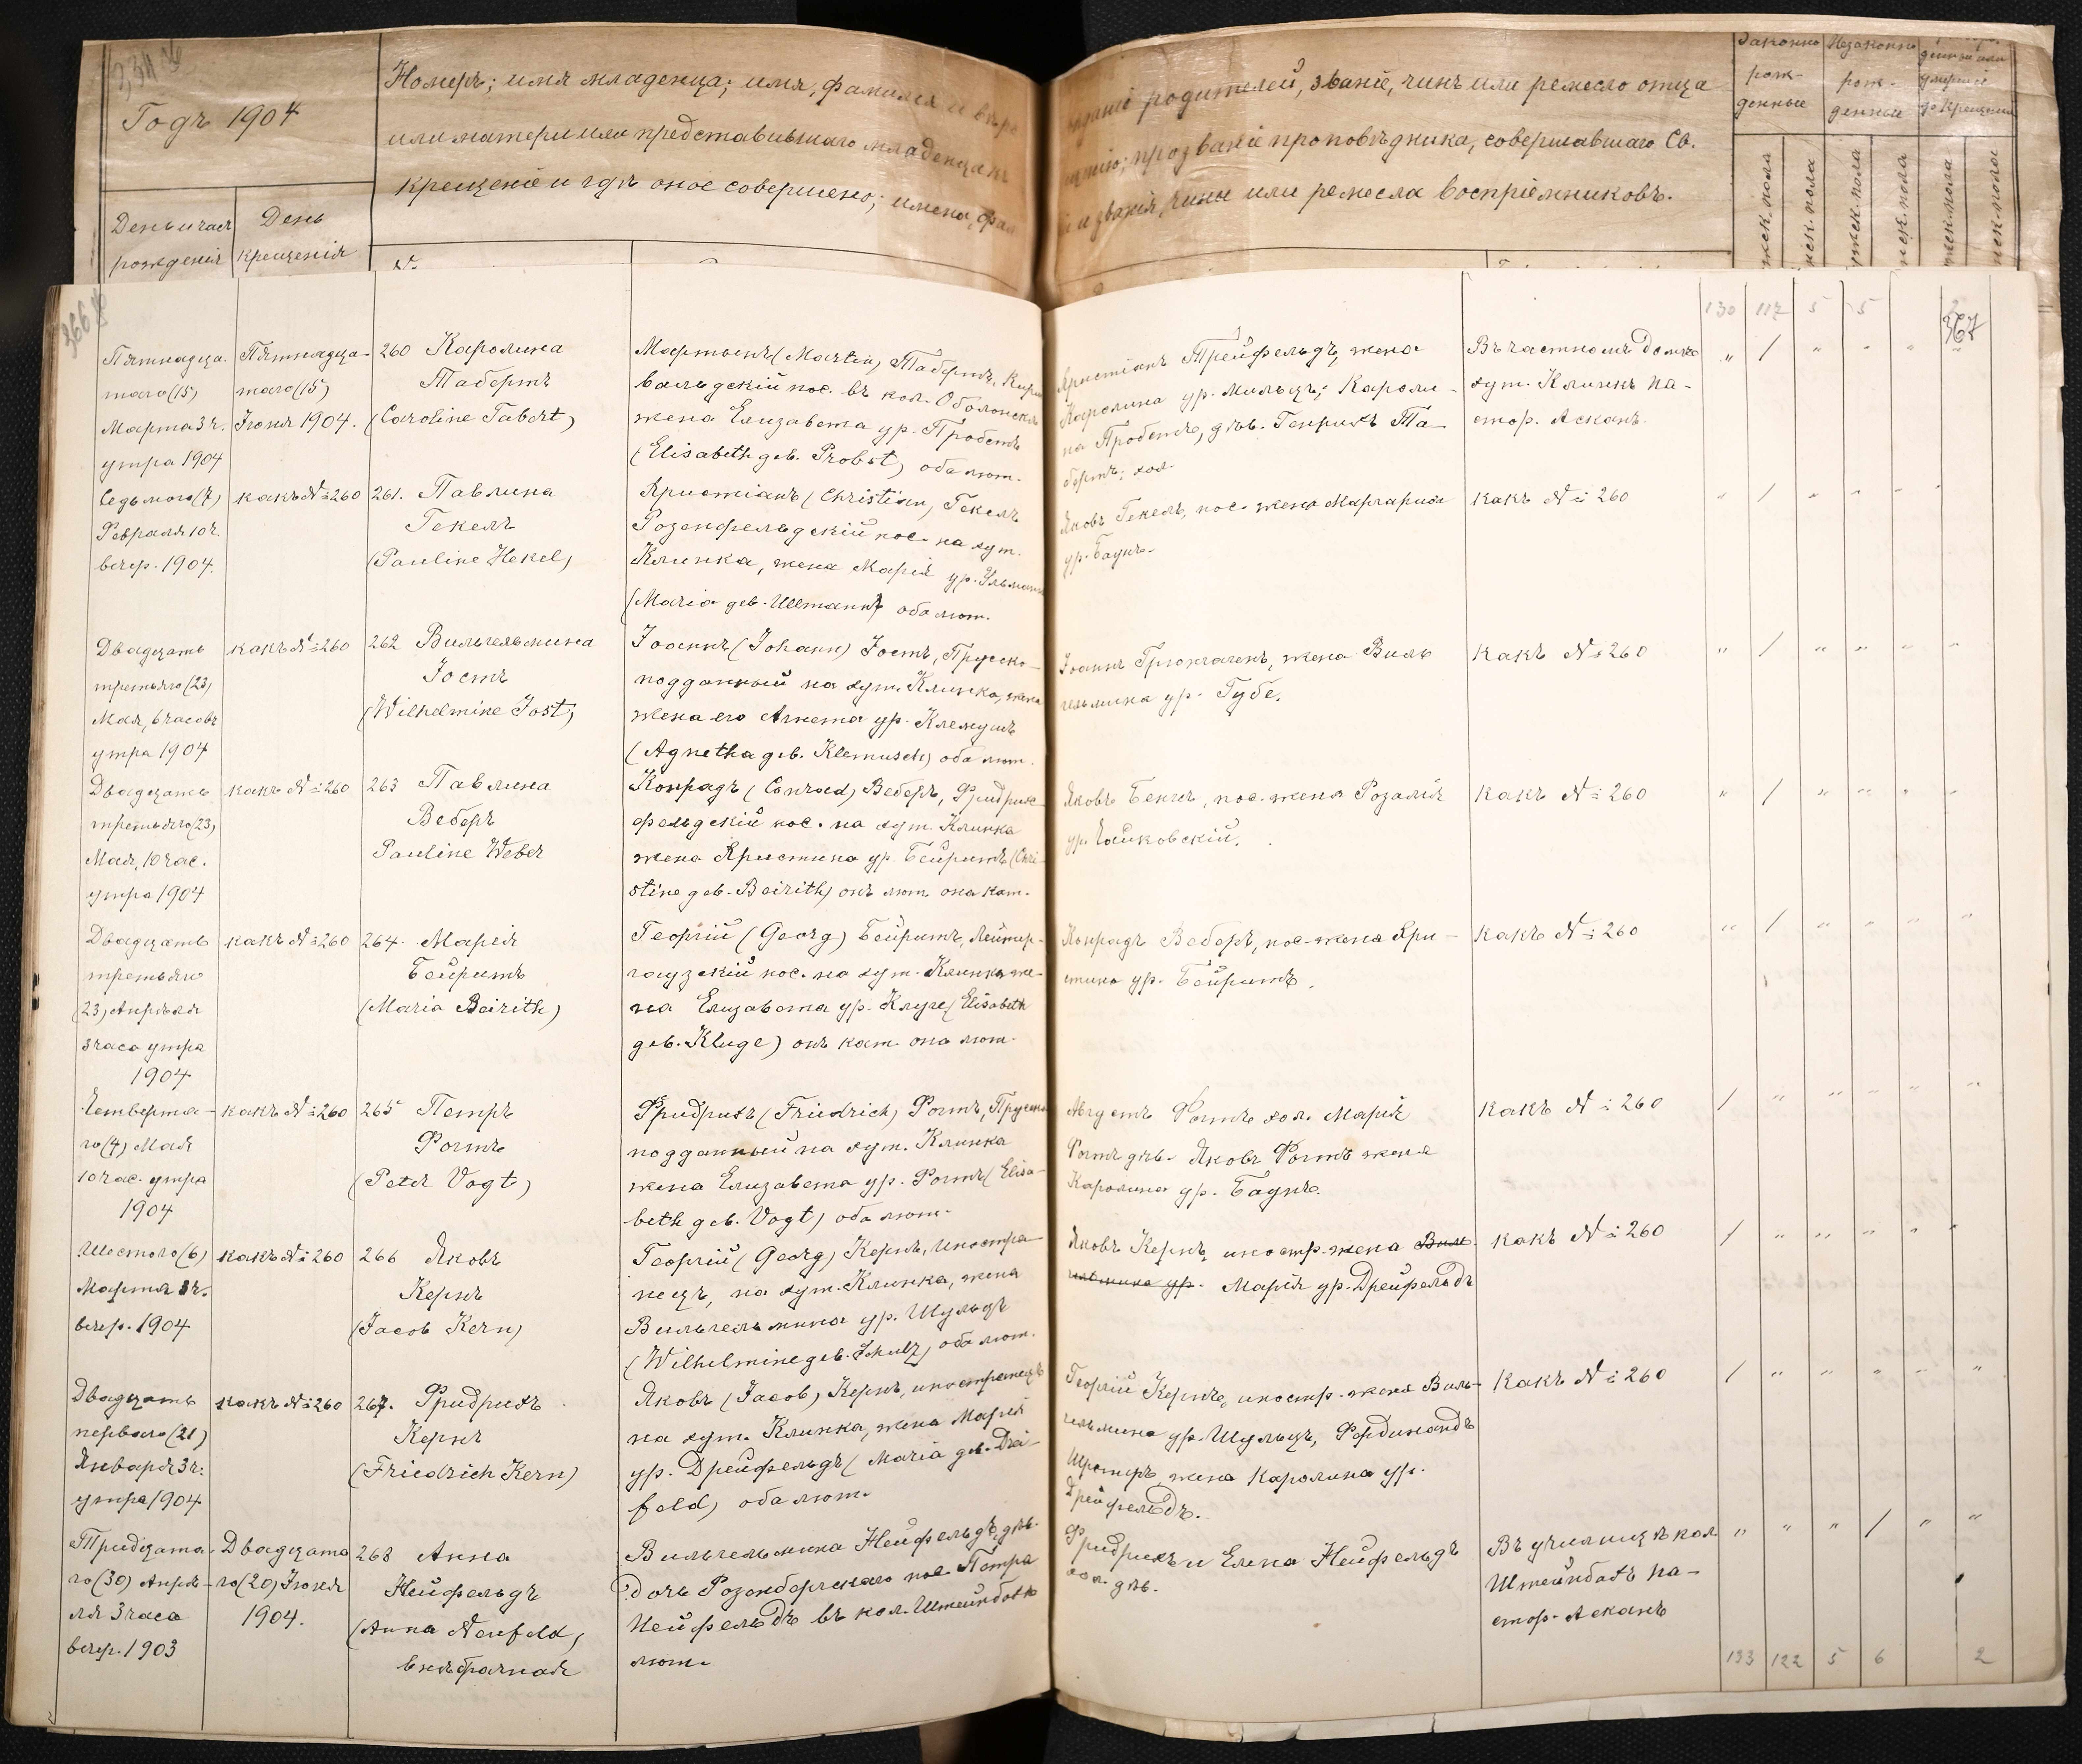 334 об
Годъ 1904
Номеръ; имя младенца; имя, фамилія и вѣро
или матери или представившаго младенца къ
крещеніе и гдѣ оное совершено; имена, фам
День и часъ рожденія
День крещенія
родителей, званіе, чинъ или ремесло отца
прозваніе проповѣдника, совершавшаго Св.
и званія, чины или ремесла воспріемниковъ.
Законно рож-
денные
Незаконно рож-
денные
умершіе
до крещенія
366
367
130 117 5 5 2
Пятнадца-
таго (15)
Марта 3 ч.
утра 1904
Пятнадца-
таго (15)
Іюня 1904.
260 Каролина
Табертъ
(Caroline Tabert)
Мартынъ (Martin) Табертъ,
вальдскій пос. въ кол. Оболонскъ
жена Елизавета ур. Пробстъ
(Elisabeth geb. Probst) оба лют.
Христіанъ Трейфельдъ, жена
Каролина ур. Мильцъ; Кароли-
на Пробстъ, дѣв. Генрихъ Та-
бертъ, хол.
Въ частномъ домѣ
хут. Клинкъ па-
стор. Асканъ.
Седьмого (7)
Февраля 10 ч.
вечер. 1904.
какъ № 260
261. Павлина
Гекель
(Pauline Hekel)
Христіанъ (Christian) Гекель
Розенфельдскій пос. на хут.
Клинка, жена Марія ур. Ульманъ
(Maria geb. Ullmann) оба лют.
Яковъ Гекель, пос. жена Маргарита
ур. Баунъ.
какъ № 260
Двадцать
третьяго (23)
Мая, 6 часовъ
утра 1904
какъ № 260
262 Вильгельмина
Іостъ
(Wilhelmine Jost)
Іоаннъ (Johann) Іостъ, Прусско-
подданный на хут. Клинка, жена
жена его Агнета ур. Клемушъ
(Agnetha geb. Klemusch) оба лют.
Іоаннъ Грюнгагенъ, жена Виль
гельмина ур. Губе.
какъ № 260
Двадцать
третьяго (23)
Мая, 10 час.
утра 1904
какъ № 260
263 Павлина
Веберъ
Pauline Weber
Конрадъ (Conrad) Веберъ, Фридрих-
фельдскій пос. на хут. Клинка
жена Христина ур. Бейритъ (Chri-
stine geb. Beirith) онъ лют. она кат.
Яковъ Бенгъ, пос. жена Розалія
ур. Чайковскій.
какъ № 260
Двадцать
третьяго
(23) Апрѣля
3 часа утра
1904
какъ № 260
264. Марія
Бейритъ
(Maria Beirith)
Георгій (Georg) Бейритъ, Лейтер-
гаузскій пос. на хут. Клинка же-
на Елизавета ур. Клуге (Elisabeth
geb. Kluge) онъ кат. она лют.
Конрадъ Веберъ, пос. жена Хри-
стина ур. Бейритъ.
какъ № 260
Четверта-
го (4) Мая
10 час. утра
1904
какъ № 260
265 Петръ
Фогтъ
(Peter Vogt)
Фридрихъ (Friedrich) Фогтъ, Прусско
подданный на хут. Клинка
жена Елизавета ур. Фогтъ (Elisa-
beth geb. Vogt) оба лют.
Августъ Фогтъ хол. Марія
Фогтъ дѣв. Яковъ Фогтъ жена
Каролина ур. Баунъ.
какъ № 260
Шестого (6)
Марта 8 ч.
вечер. 1904
какъ № 260
266 Яковъ
Кернъ
(Jacob Kern)
Георгій (Georg) Кернъ, иностра-
нецъ, на хут. Клинка, жена
Вильгельмина ур. Шульцъ
(Wilhelmine geb. Schulz) оба лют.
Яковъ Кернъ, иностр. жена Виль
гельмина ур. Марія ур. Дрейфельдъ
какъ № 260
Двадцать
перваго (21)
Января 3 ч.
утра 1904
какъ № 260
267. Фридрихъ
Кернъ
(Friedrich Kern)
Яковъ (Jacob) Кернъ, иностранецъ
на хут. Клинка, жена Марія
ур. Дрейфельдъ (Maria geb. Drei-
feld) оба лют.
Георгій Кернъ, иностр. жена Виль-
гельмина ур. Шульцъ, Фердинандъ
жена Каролина ур.
Дрейфельдъ.
какъ № 260
Тридцата-
го (30) Апрѣ-
ля 3 часа
вечер. 1903
Двадцата
го (20) Іюня
1904.
268 Анна
Нейфельдъ
(Anna Neufeld)
внѣбрачная
Вильгельмина Нейфельдъ, дѣв.
дочь Розенбергскаго пос. Петра
Нейфельдъ въ кол. Штейнбахъ
лют.
Фридрихъ и Елена Нейфельдъ
хол. дѣв.
Въ училищѣ кол.
Штейнбахъ па-
стор. Асканъ
133 122 5 6 2